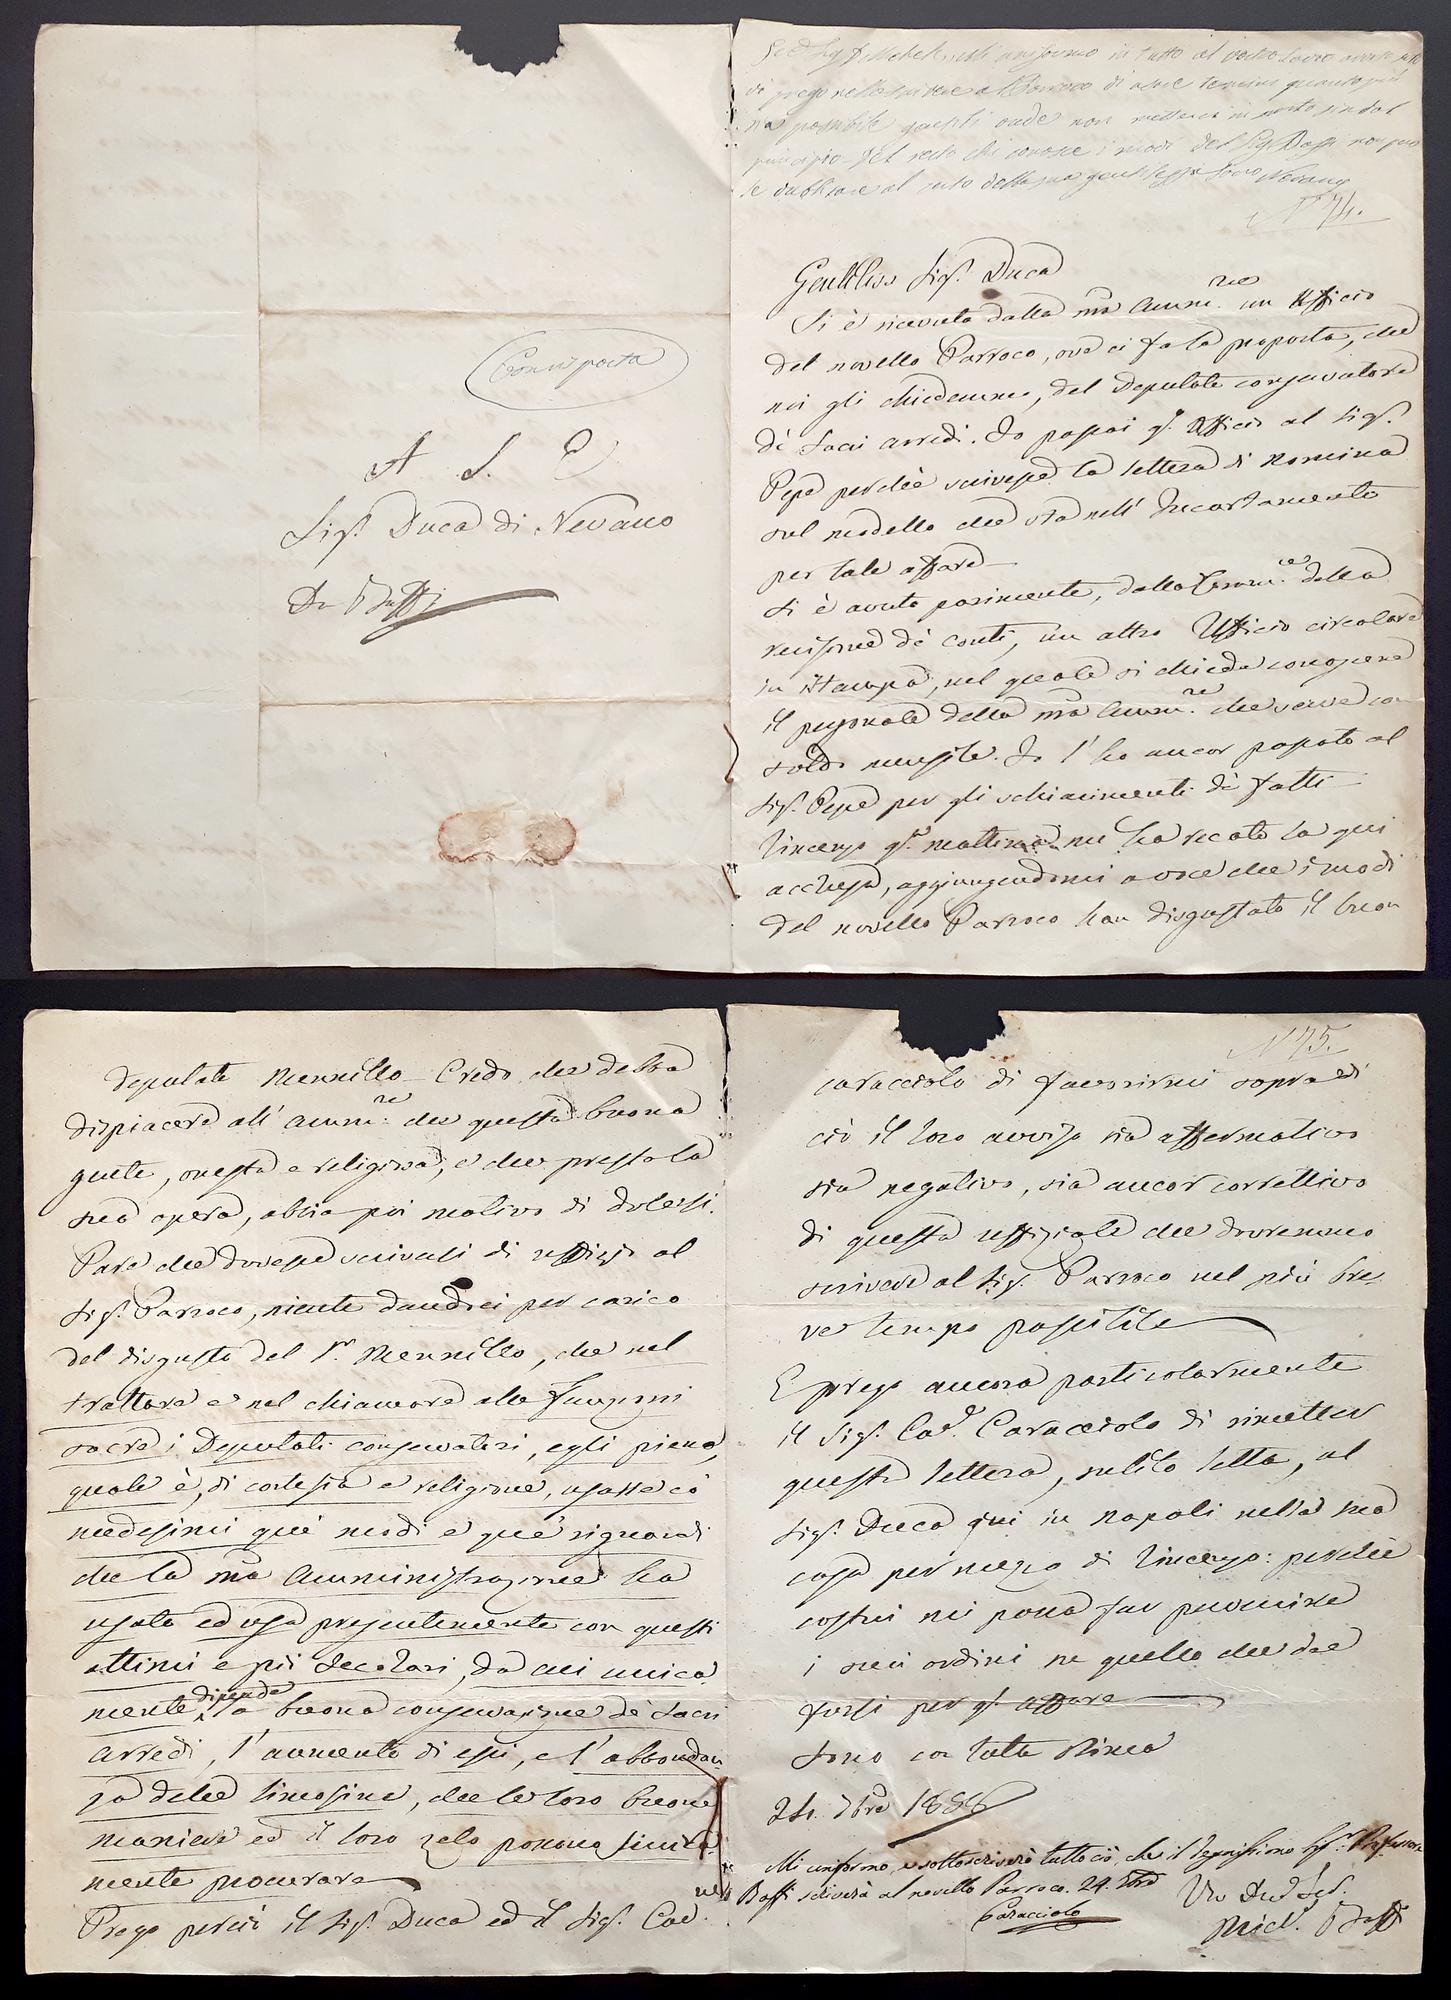 Con risposta
A S. E.
Sigr. Duca di Nevano
Da Baffi
in tutto al vostro savio
vi prego nello scrivere al Parroco di usare termini quanto più
sia possibile gentili onde non metterci in urto sin dal
principio. Del resto chi conosce i modi del Sig Baffi non può
dubitare al certo della sua gentilezza Nevano
N 74.
Gentiliss Sigr. Duca
Si è ricevuto dalla nra Ammne. un Ufficio
del novello Parroco, ove ci fa la proposta, che
noi gli chiedemmo, del Deputato conservatore
de' Sacri arredi. Io passai qo. Ufficio al Sigr.
Pepe perchè scrivesse la lettera di nomina
sul modello che sta nell' Incartamento
per tale affare
Si è avuto parimente, dalla Comm.ne della
revisione de' conti, un altro Ufficio circolare
in istampa, nel quale si chiede conoscere
il personale della nra Ammne. che serve con
soldo mensile. Io l' ho ancor passato al
Sigr. Pepe per gli schiarimenti de' fatti
Vincenzo qa. mattina me ha recato la qui
acchiusa, aggiungendomi a voce che i modi
del novello Parroco han disgustato il buon
deputato Mennillo - Credo che debba
dispiacere all' Ammne. che questa buona
gente, onesta e religiosa, e che presta la
sua opera, abbia poi motivo di dolersi.
Pare che dovesse scriversi di uffizio al
Sigr. Parroco, niente dandoci per carico
del disgusto del Sr. Mennillo, che nel
trattare e nel chiamare alle funzioni
sacre i Deputati conservatori, egli pieno,
quale è, di cortesia e religione, usasse co'
medesimi que' modi e que' riguardi
che la nra Amministrazione ha
usato ed usa presentemente con questi
ottimi e pii Secolari, da cui unica
mente dipende la buona conservazione de' Sacri
arredi, l' aumento di essi, e l' abbondan
za delle limosine, che le loro buone
maniere ed il loro zelo possono sicura
mente procurare
Prego perciò il Sigr. Duca ed il Sigr. Cav.
N 75.
Caracciolo di favorirmi sopra di
ciò il loro avviso sia affermativo
sia negativo, sia ancor correttivo
di questa uffiziale che dovremmo
scrivere al Sigr. Parroco nel più bre
ve tempo possibile
E prego ancora particolarmente
il Sigr. Cav. Caracciolo di rimetter
questa lettera, subito letta, al
Sigr. Duca qui in Napoli nella sua
casa per mezzo di Vincenzo: perchè
costui mi possa far pervenire
i suoi ordini su quello che dee
farsi per qo. affare
Sono con tutta stima
24. 7bre
Mi uniformo, e sottoscriverò tutto ciò, che il degnissimo Sigr. Professore
Baffi scriverà al novello Parroco. 24. 7bre
Caracciolo
Vro
Michl. Baffi